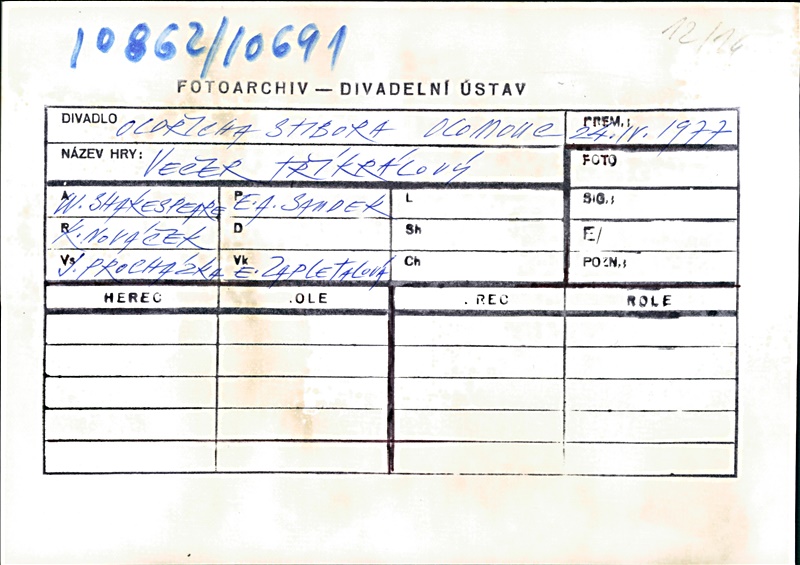 10862/10691
12/14
FOTOARCHIV — DIVADELNÍ ÚSTAV
DIVADLO OLDŘICHA STIBORA OLOMOUC PREM.: 24.IV.1977
NÁZEV HRY: VEČER TŘÍKRÁLOVÝ FOTO
A W. SHAKESPEARE P E.A. SAUDEK L SIG.:
R K. NOVÁČEK D Sh E/
Vs J. PROCHÁZKA Vk E. ZAPLETALOVÁ Ch POZN.:
HEREC .OLE . REC ROLE